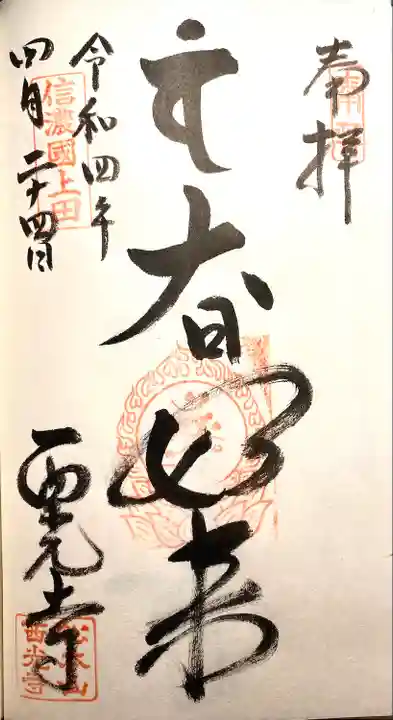 奉拝
大日如来
令和四年
四月二十四日
信濃國上田
西光寺
西光寺